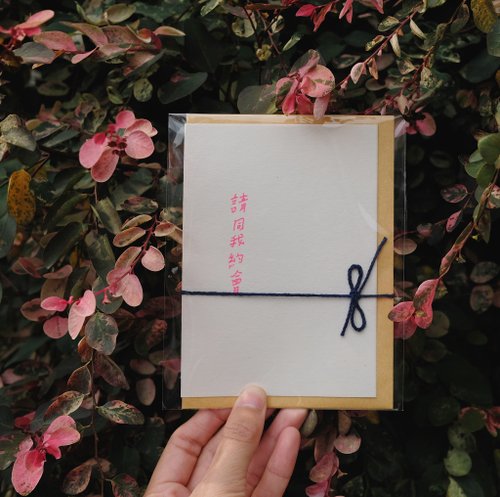 請同我約會